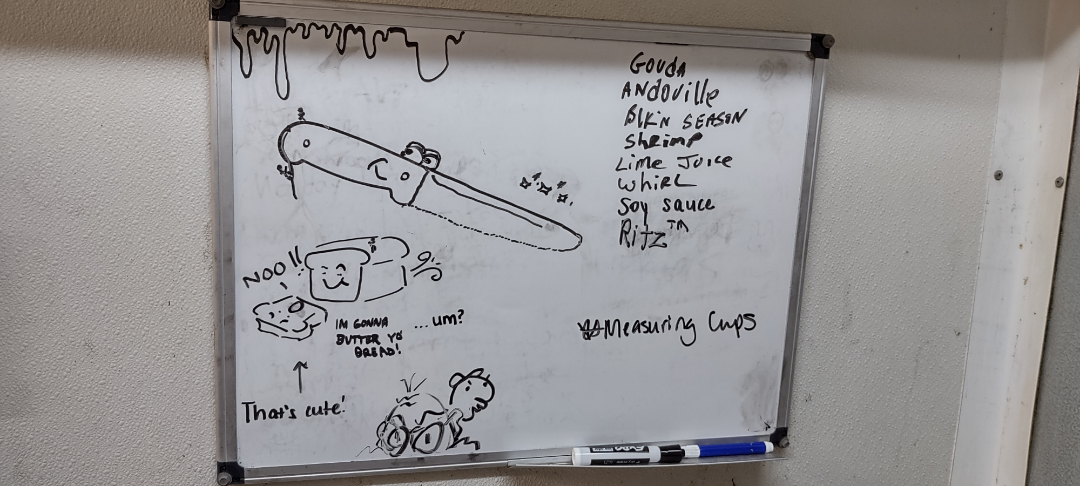 Gouda
ANdoville
BlK'N SEASON
Shrimp
Lime Juice
Whirl
Soy sauce
Ritz™
NOO!!
IM GONNA
BUTTER YO
BREAD!
...um?
Measuring Cups
That's cute!
EXPO